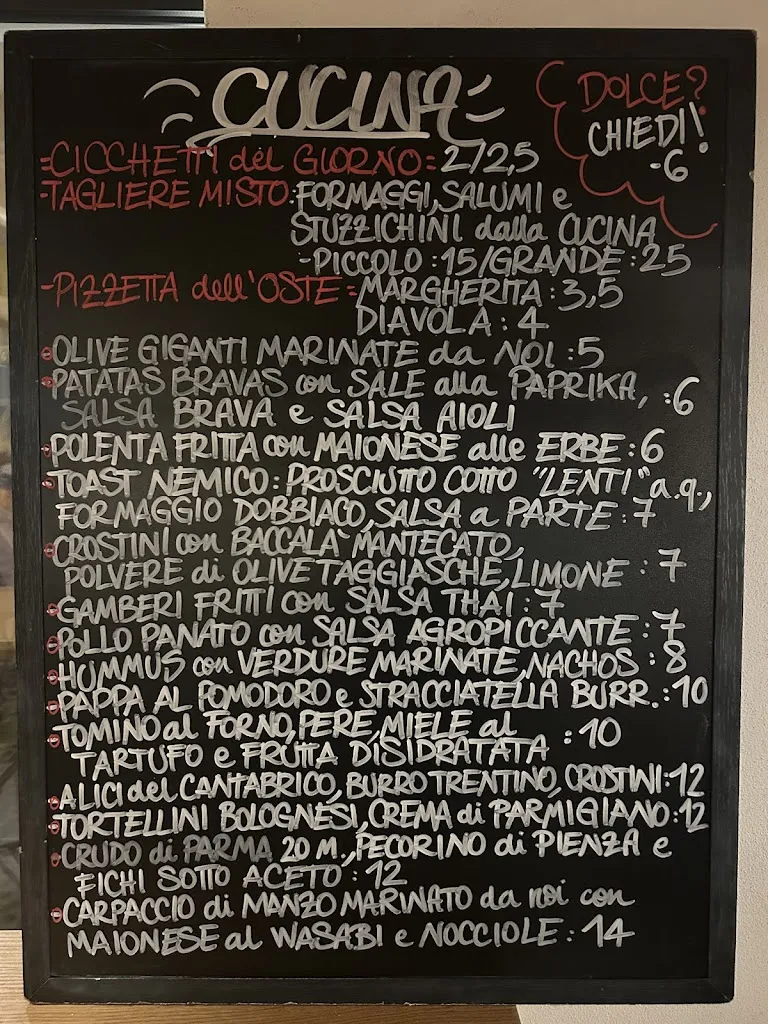 CUCINA
DOLCE?
CHIEDI!
-6
=CICCHETTI del GIORNO= 2/2,5
-TAGLIERE MISTO: FORMAGGI, SALUMI e
STUZZICHINI dalla CUCINA
-PICCOLO: 15/GRANDE: 25
-PIZZETTA dell'OSTE= MARGHERITA: 3,5
DIAVOLA: 4
OLIVE GIGANTI MARINATE da NOI: 5
PATATAS BRAVAS con SALE alla PAPRIKA, :6
SALSA BRAVA e SALSA AIOLI
POLENTA FRITTA con MAIONESE alle ERBE: 6
TOAST NEMICO: PROSCIUTTO COTTO "LENTI" a.q.,
FORMAGGIO DOBBIACO, SALSA a PARTE: 7
CROSTINI con BACCALA' MANTECATO,
POLVERE di OLIVE TAGGIASCHE, LIMONE: 7
GAMBERI FRITTI con SALSA THAI: 7
POLLO PANATO con SALSA AGROPICCANTE: 7
HUMMUS con VERDURE MARINATE, NACHOS: 8
PAPPA AL POMODORO e STRACCIATELLA BURR.: 10
TOMINO al FORNO, PERE, MIELE al :10
TARTUFO e FRUTTA DISIDRATATA
ALICI del CANTABRICO, BURRO TRENTINO, CROSTINI: 12
TORTELLINI BOLOGNESI, CREMA di PARMIGIANO: 12
CRUDO di PARMA 20 M., PECORINO di PIENZA e
FICHI SOTTO ACETO: 12
CARPACCIO di MANZO MARINATO da noi con
MAIONESE al WASABI e NOCCIOLE: 14